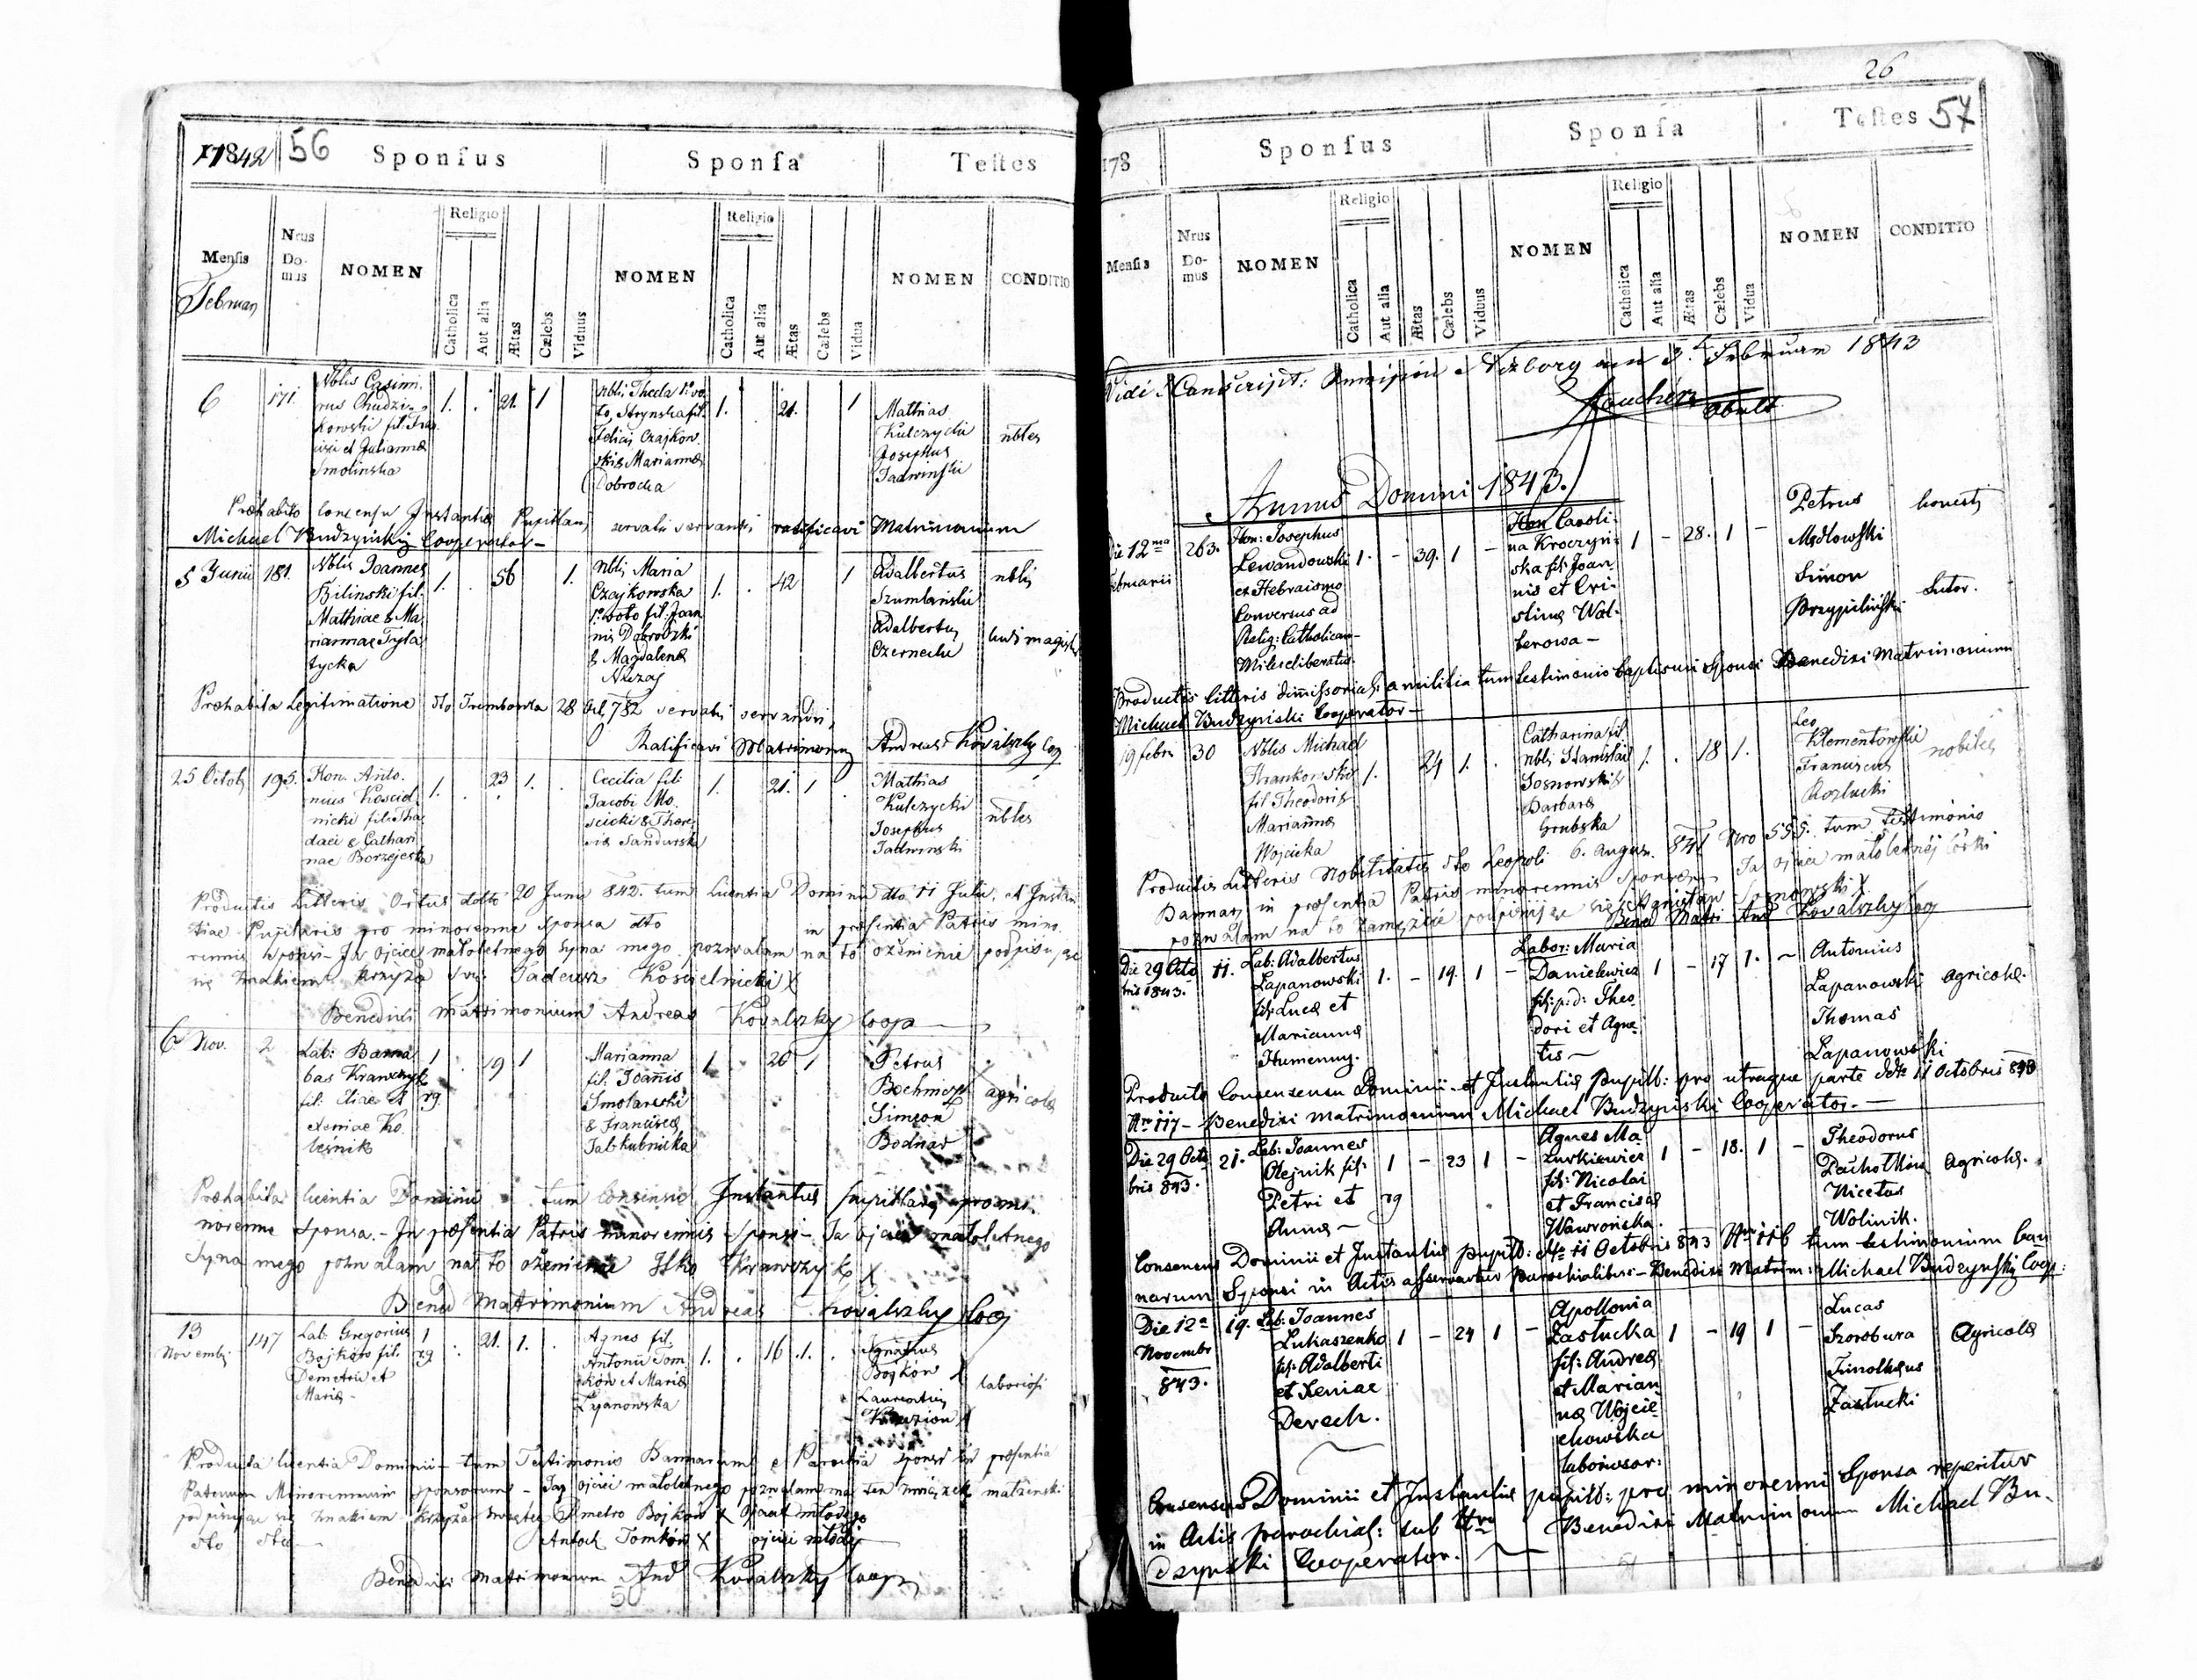 17842 56 Sponsus Sponsa Testes
Mensis Nrus Domus NOMEN Religio Catholica Aut alia Ætas Cælebs Viduus NOMEN Religio Catholica Aut alia Ætas Cælebs Vidua NOMEN CONDITIO
Februar
6 171. Nblis Casimi-
rus Chudzi-
kowski fil. Fran
cisci et Julianna
Smolinska
1. . 21. 1
Nblis Thecla 1º vo
to, Strynska fil.
Felicis Czajkow
ski & Marianna
Dobrocka
1. 21. 1
Mathias
Kulczycki
Josephus
Jadwinski
nbles
Præhabito consensu Instantiæ Pupillaris servatis servandis ratificavi Matrimonium
Michael Budzyński Cooperator-
5 Junii 181. Nblis Joannes
Bilinski fil.
Mathiae & Ma
riannae Tyla
tycka
1. . 56 1.
Nblis Maria
Czajkowska
1º voto fil. Joan
nis Dobrodzki
& Magdalena
1. . 42 1
Adalbertus
Szumlański
Adalbertus
Czernecki
nblis
ludi magister
Præhabita Legitimatione dto Trembowla 28 782 servatis servandis,
Ratificavi Matrimonium Andreas Kovalszky Coop
25 Octob 195. Hon. Anto-
nius Kosciel
nicki fil. Tha
daei & Cathari
nae Borzejeska
1. . 23 1. .
Cecilia fil.
Jacobi Mo.
scicki & There
sia Sandurska
1. 21. 1 .
Mathias
Kulczycki
Josephus
Jadwinski
nbles
Productis Litteris Ortus ddto 20 Junii 842. tum Licentia Dominii dto 11 Julii, et Instan
tiae Pupillaris pro minorenne sponsa dto in præsentia Patris mino-
rennis sponsi- Ja Ojciec małoletnego Syna mego pozwalam na to ożenienie podpisuję
się znakiem krzyża Sw: Tadeusz Koscielnicki X
Benedixi Matrimonium Andreas Kovalszky Coop
6 Nov. 2 Lab: Barna
bas Krawczyk
fil. Eliae et
Xeniae Ko
leśnik
1 rg . 19 1
Marianna
fil. Joannis
Smolanski
& Francisca
Jabkubnicka
1 . 20 1
Petrus
Simeon
Bodnar
agricola
Præhabita licentia Dominii tum Consensu Instantiæ pupillaris pro mi-
norenne sponsa.- In præsentia Patris minorennis Sponsi- Ja ojciec małoletnego
Syna mego pozwalam na to ożenienie Ilko Krawczyk X
Bened Matrimonium Andreas Kovalszky Coop
13
Novembr
147 Lab. Gregorius
Bojków fil.
Demetrii et
Maria-
1 rg . 21. 1.
Agnes fil.
Antonii Tom
ków et Maria
Lapanowska
1. . 16 .1. .
Ignatius
Bojków X
Laurentius
X
laboriosi
Producta licentia Dominii- tum Testimonio Bannorum e Parochia sponsi in præsentia
Patrum Minorennium sponsorum- Ja Ojciec małoletnego pozwalam na ten związek małżenski
podpisujące się znakiem krzyża Dmetro Bojków X Ojciec młodego
dto Antoch Tomków X ojciec młodej
Benedixi Matrimonium And Kovalszky Coop
50
26
178 Sponsus Sponsa Testes 57
Mensis Nrus Domus NOMEN Religio Catholica Aut alia Ætas Cælebs Viduus NOMEN Religio Catholica Aut alia Ætas Cælebs Vidua NOMEN CONDITIO
Vidi Conscript: Februar 1843
Annus Domini 1843.
Die 12ma
Februarii
263. Hon: Josephus
Lewandowski
ex Hebraismo
Conversus ad
Relig: Catholicam-
Miles liberatus
1. - 39. 1 -
Hon Caroli-
na Kroczyń-
ska fil: Joan
nis et Cri-
stina Wol-
lerowa-
1 - 28. 1 -
Petrus
Mydłowski
Simon
Przypiliński
honesti
Sutor.
Productis litteris dimissorial: a militia tum testimonio baptismi Sponsi Benedixi Matrimonium
Michael Budzynski Cooperator-
19 febr 30 Nblis Michael
Hrankowski
fil Theodori &
Marianna
Wojcicka
1. 24 1. .
Catharina fil.
nblis Stanislai
Sosnowski &
Barbara
Grubska
1. . 18 1.
Leo
Klementowski
Franciscus
Rozlucki
nobiles
Productis Litteris Nobilitatis dto Leopoli 6. August. 841 Nro 555. tum testimonio
Bannar in præsentia Patris minorennis Sponsa- Ja ojciec małoletnej córki
pozwalam na to zamęzcie podpisuje się Stanisław Sosnowski X
Bened Matri And Kovalszky Coop
Die 29 Octo
bris 1843.
11. Lab: Adalbertus
Lapanowski
fil: Luca et
Marianna
Humenny.
1. - 19. 1 -
Labor: Maria
Danielewicz
fil: p: d: Theo
dori et Agne
tis~
1 - 17 1. ~
Antonius
Lapanowski
Thomas
Lapanowski
agricola.
Producto Consensu Dominii et Instantiæ pupill: pro utraque parte ddto 11 Octobris 843
Nro 117- Benedixi Matrimonium Michael Budzynski Cooperator.-
Die 29 Octo
bris 843.
21. Lab: Joannes
Olejnik fil:
Petri et
Anna~
1 rg - 23 1 -
Agnes Ma
zurkiewicz
fil: Nicolai
et Francisca
Wawrońska.
1 - 18. 1 -
Theodorus
Pachołkiw
Nicetas
Wolinik.
Agricola.
Consensus Dominii et Instantiæ pupill: dto 11 Octobris 843 Nro 116 tum testimonium ban
norum Sponsi in Actis asservantur parochialibus- Benedixi Matrim: Michael Budzynski Coop:
Die 12a
Novembr
843.
19. Lab: Joannes
Lukaszenko
fil: Adalberti
et Xeniae
Derech.
1 - 24 1 -
Apollonia
Zastucka
fil: Andrea
et Marian
na Wojcie
chowska
laborisor:
1 - 19 1 -
Lucas
Szorobura
Timotheus
Zastucki
Agricola
Consensus Dominii et Instantiæ pupill: pro minorenni Sponsa reperitur
in Actis parochial: sub Nro Benedixi Matrimonium Michael Bu-
dzynski Cooperator.